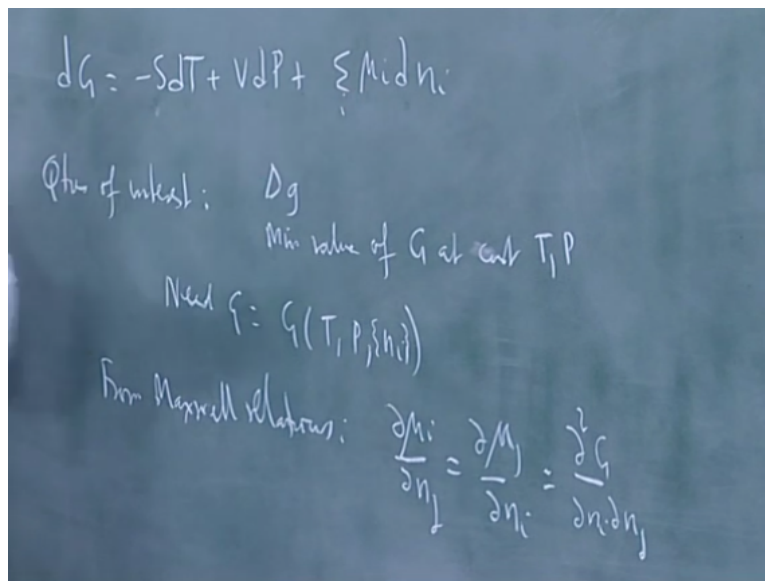 dG = -SdT + VdP + Σ_i μ_i dn_i
of interest: Δg
Min value of G at cnst T, P
Need G = G(T, P, {n_i})
From Maxwell relations: ∂μ_i/∂n_j = ∂μ_j/∂n_i = ∂²G/∂n_i∂n_j